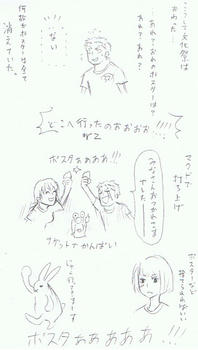 こうして文化祭は
おわった
…あれ？おれのポスターは？
あれ？あれ？
ない
何故かポスターは全て
消えていた。
どこへ行ったのおおおお!!!!
マクドで
打ち上げ
みなさんおつかれさま
でした
ポスタぁぁぁぁ!!!
ナゲットでかんぱい
ポスターなど
捨てればいい
ポスタぁぁぁぁぁ!!!